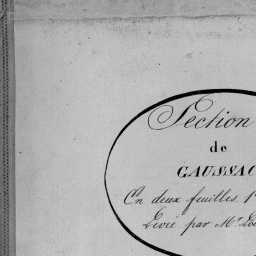 Section
de
GAUSSAC
En deux feuilles, 1
Levée par Mr.